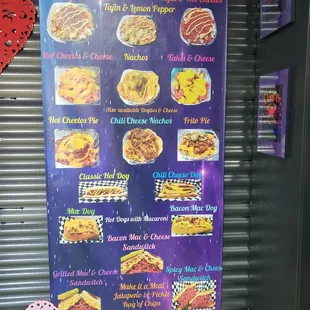 Tajin & Lemon Pepper
Hot Cheetos & Cheese
Nachos
Takis & Cheese
Also available Doritos & Cheese
Hot Cheetos Pie
Chili Cheese Nachos
Frito Pie
Classic Hot Dog
Chili Cheese Dog
Mac Dog
Hot Dogs with Macaroni
Bacon Mac Dog
Bacon Mac & Cheese
Sandwitch
Grilled Mac & Cheese
Sandwitch
Make it a Meal
Jalapeño or Pickle
Bag of Chips
Spicy Mac & Cheese
Sandwitch